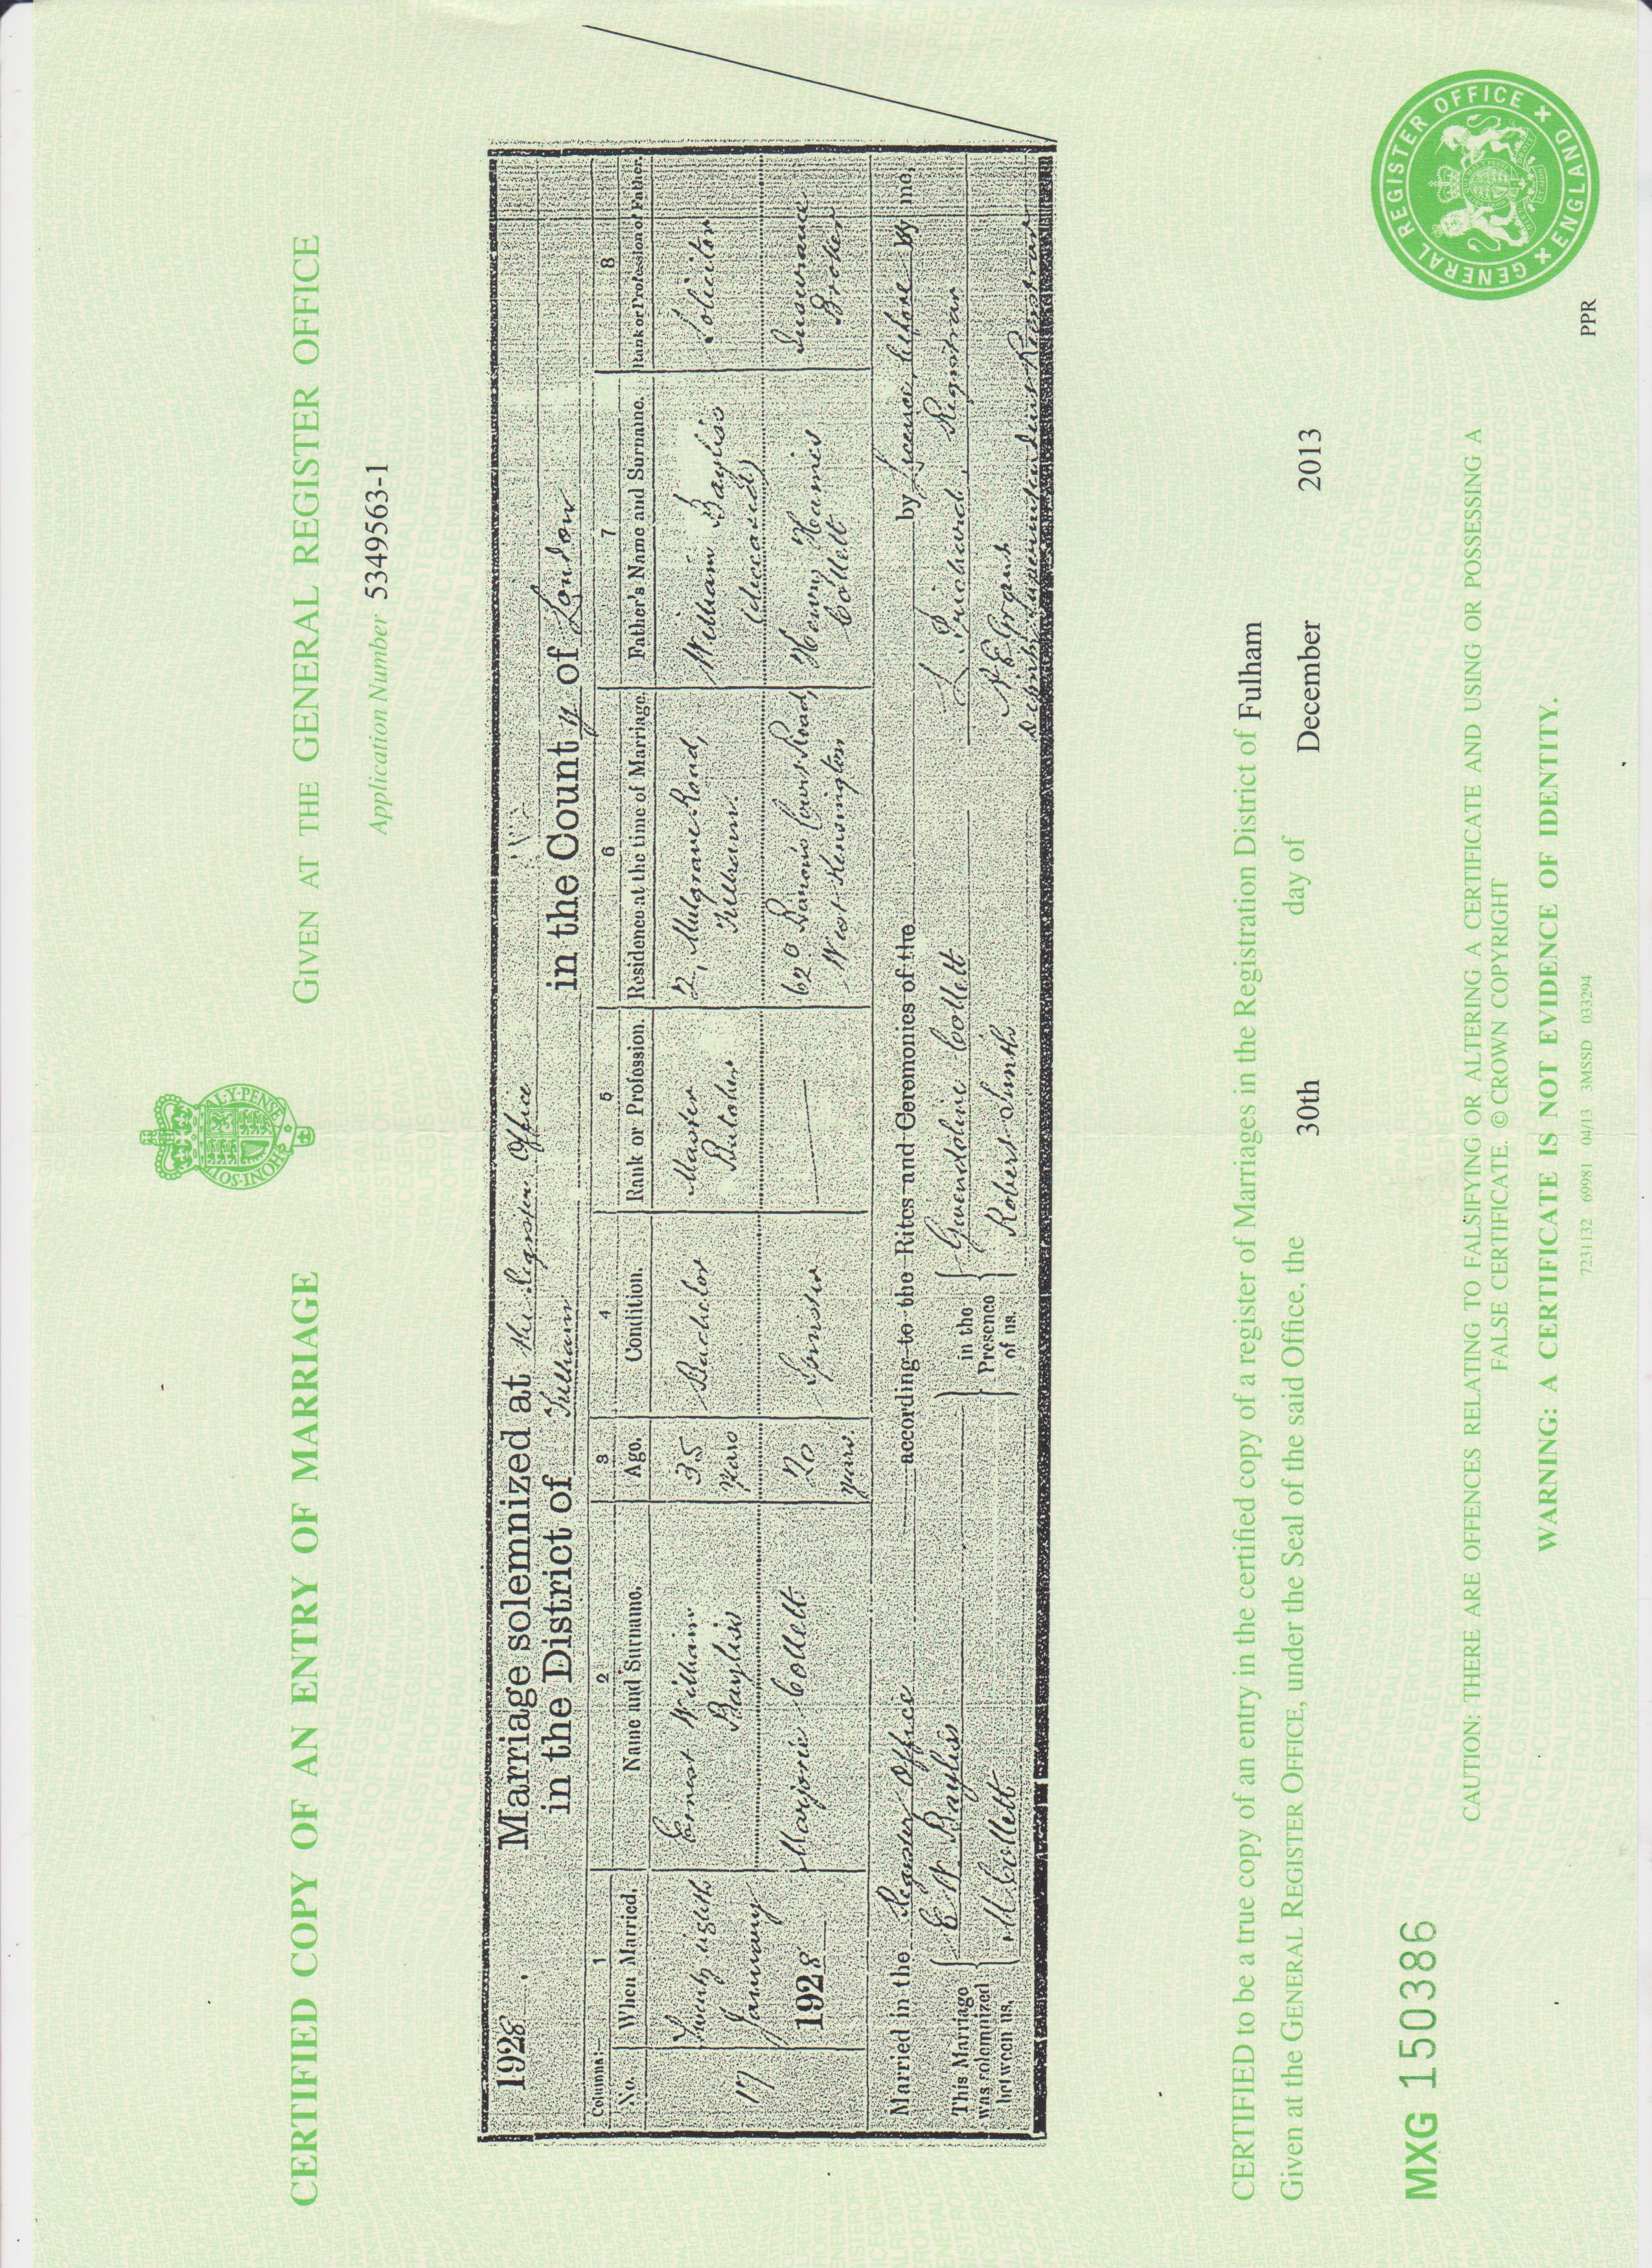 CERTIFIED COPY OF AN ENTRY OF MARRIAGE
GIVEN AT THE GENERAL REGISTER OFFICE
HONI·SOIT
AL·Y·PENSE
Application Number 5349563-1
1928. Marriage solemnized at the Register Office
in the District of Fulham in the County of London
Columns:— 1 2 3 4 5 6 7 8
No. When Married. Name and Surname. Age. Condition. Rank or Profession. Residence at the time of Marriage. Father's Name and Surname. Rank or Profession of Father.
17 Twenty eighth Ernest William 35 Bachelor Master 2, Mulgrave Road, William Bayliss Solicitor
January Bayliss years Butcher Fulham. (deceased)
1928 Marjorie Collett 20 Spinster — 62 Barons Court Road, Henry Haines Insurance
years West Kensington Collett Broker
Married in the Register Office according to the Rites and Ceremonies of the by Licence, before by me,
This Marriage was solemnized between us,
E W Bayliss
M Collett
in the Presence of us.
Gwendoline Collett
Robert Smith
L Prichard, Registrar
Evans
Deputy Superintendent Registrar
CERTIFIED to be a true copy of an entry in the certified copy of a register of Marriages in the Registration District of Fulham
Given at the GENERAL REGISTER OFFICE, under the Seal of the said Office, the 30th day of December 2013
MXG 150386
CAUTION: THERE ARE OFFENCES RELATING TO FALSIFYING OR ALTERING A CERTIFICATE AND USING OR POSSESSING A
FALSE CERTIFICATE. © CROWN COPYRIGHT
WARNING: A CERTIFICATE IS NOT EVIDENCE OF IDENTITY.
7231132 69981 04/13 3MSSD 033294
PPR
GENERAL REGISTER OFFICE + ENGLAND +